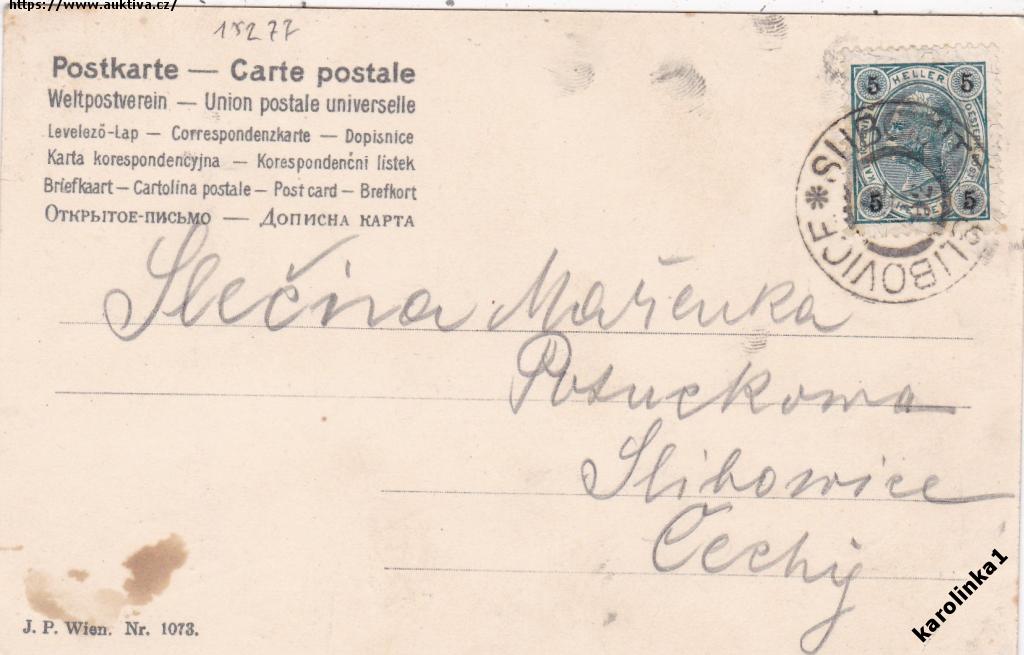 https://www.auktiva.cz/
15277
Postkarte — Carte postale
Weltpostverein — Union postale universelle
Levelező-Lap — Correspondenzkarte — Dopisnice
Karta korespondencyjna — Korespondenčni listek
Briefkaart — Cartolina postale — Post card — Brefkort
Открытое-письмо — Дописна карта
5 HELLER 5
5 5
SLIBOVICE * SLIBOVICE
Slečina Mařenka
Posuckowa
Slibowice
Čechy
J. P. Wien. Nr. 1073.
karolinka1